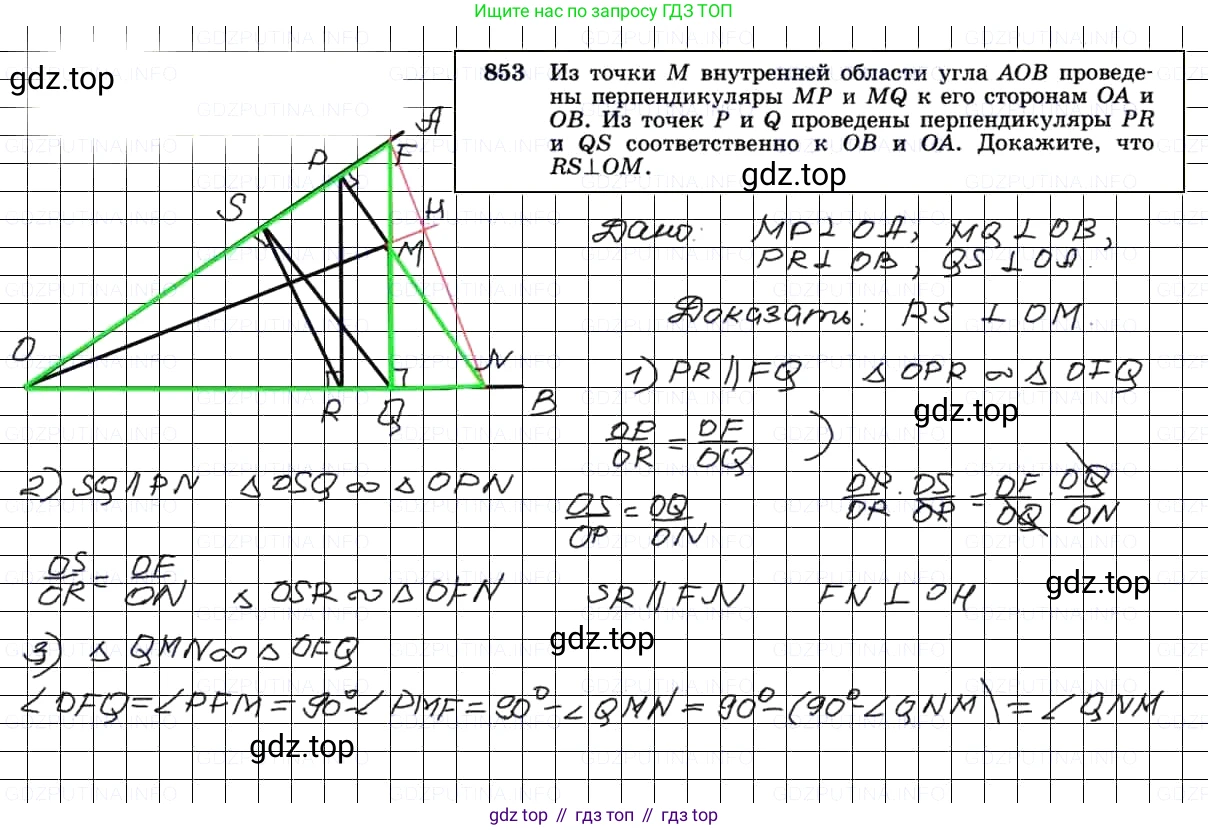 Ищите нас по запросу ГДЗ ТОП
gdz.top
853 Из точки M внутренней области угла AOB проведе-
ны перпендикуляры MP и MQ к его сторонам OA и
OB. Из точек P и Q проведены перпендикуляры PR
и QS соответственно к OB и OA. Докажите, что
RS⊥OM.
gdz.top
A
F
P
S
H
M
O
N
R
Q
B
Дано: MP⊥OA, MQ⊥OB,
PR⊥OB, QS⊥OA.
Доказать: RS ⊥ OM.
1) PR∥FQ ΔOPR∞ΔOFQ
gdz.top
OP/OR = OF/OQ )
2) SQ∥PN ΔOSQ∞ΔOPN
OS/OP = OQ/ON
OP/OR · OS/OP = OF/OQ · OQ/ON
OS/OR = OF/ON ΔOSR∞ΔOFN SR∥FN FN⊥OH
gdz.top
gdz.top
3) ΔQMN∞ΔOFQ
∠OFQ=∠PFM=90°-∠PMF=90°-∠QMN=90°-(90°-∠QNM)=∠QNM
gdz.top
gdz.top // гдз топ // gdz top